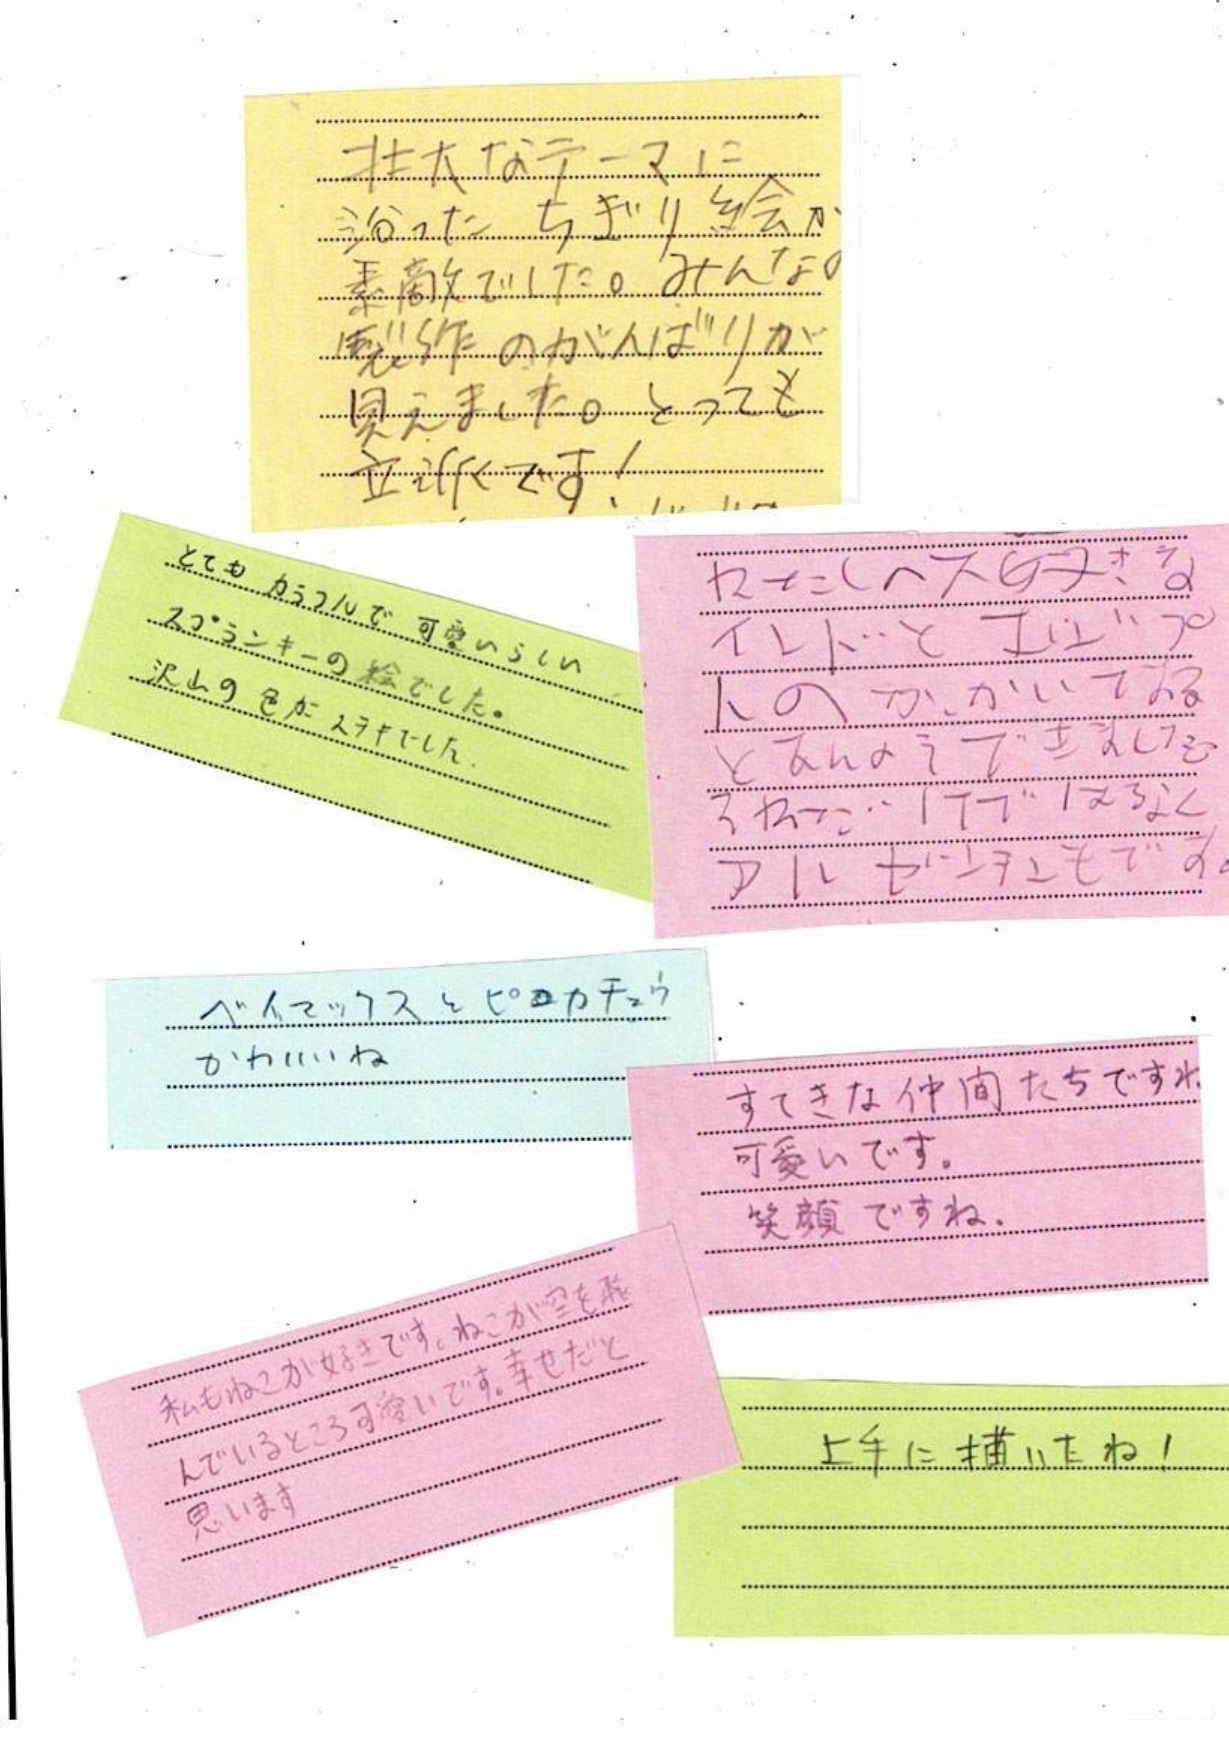 壮大なテーマに
沿った ちぎり絵が
素敵でした。みんなの
製作のがんばりが
見えました。とっても
立派です!
とても カラフルで 可愛いらしい
スプランキーの絵でした。
沢山の 色が ステキでした.
イレド"と エジプ
トの か、かいてある
アルゼンチンもです。
ベイマックスとピカチュウ
かわいいね
すてきな仲間たちですね
可愛いです。
笑顔ですね.
私もねこが好きです。ねこが空を飛
んでいるところ可愛いです。幸せだと
思います
上手に描いたね!